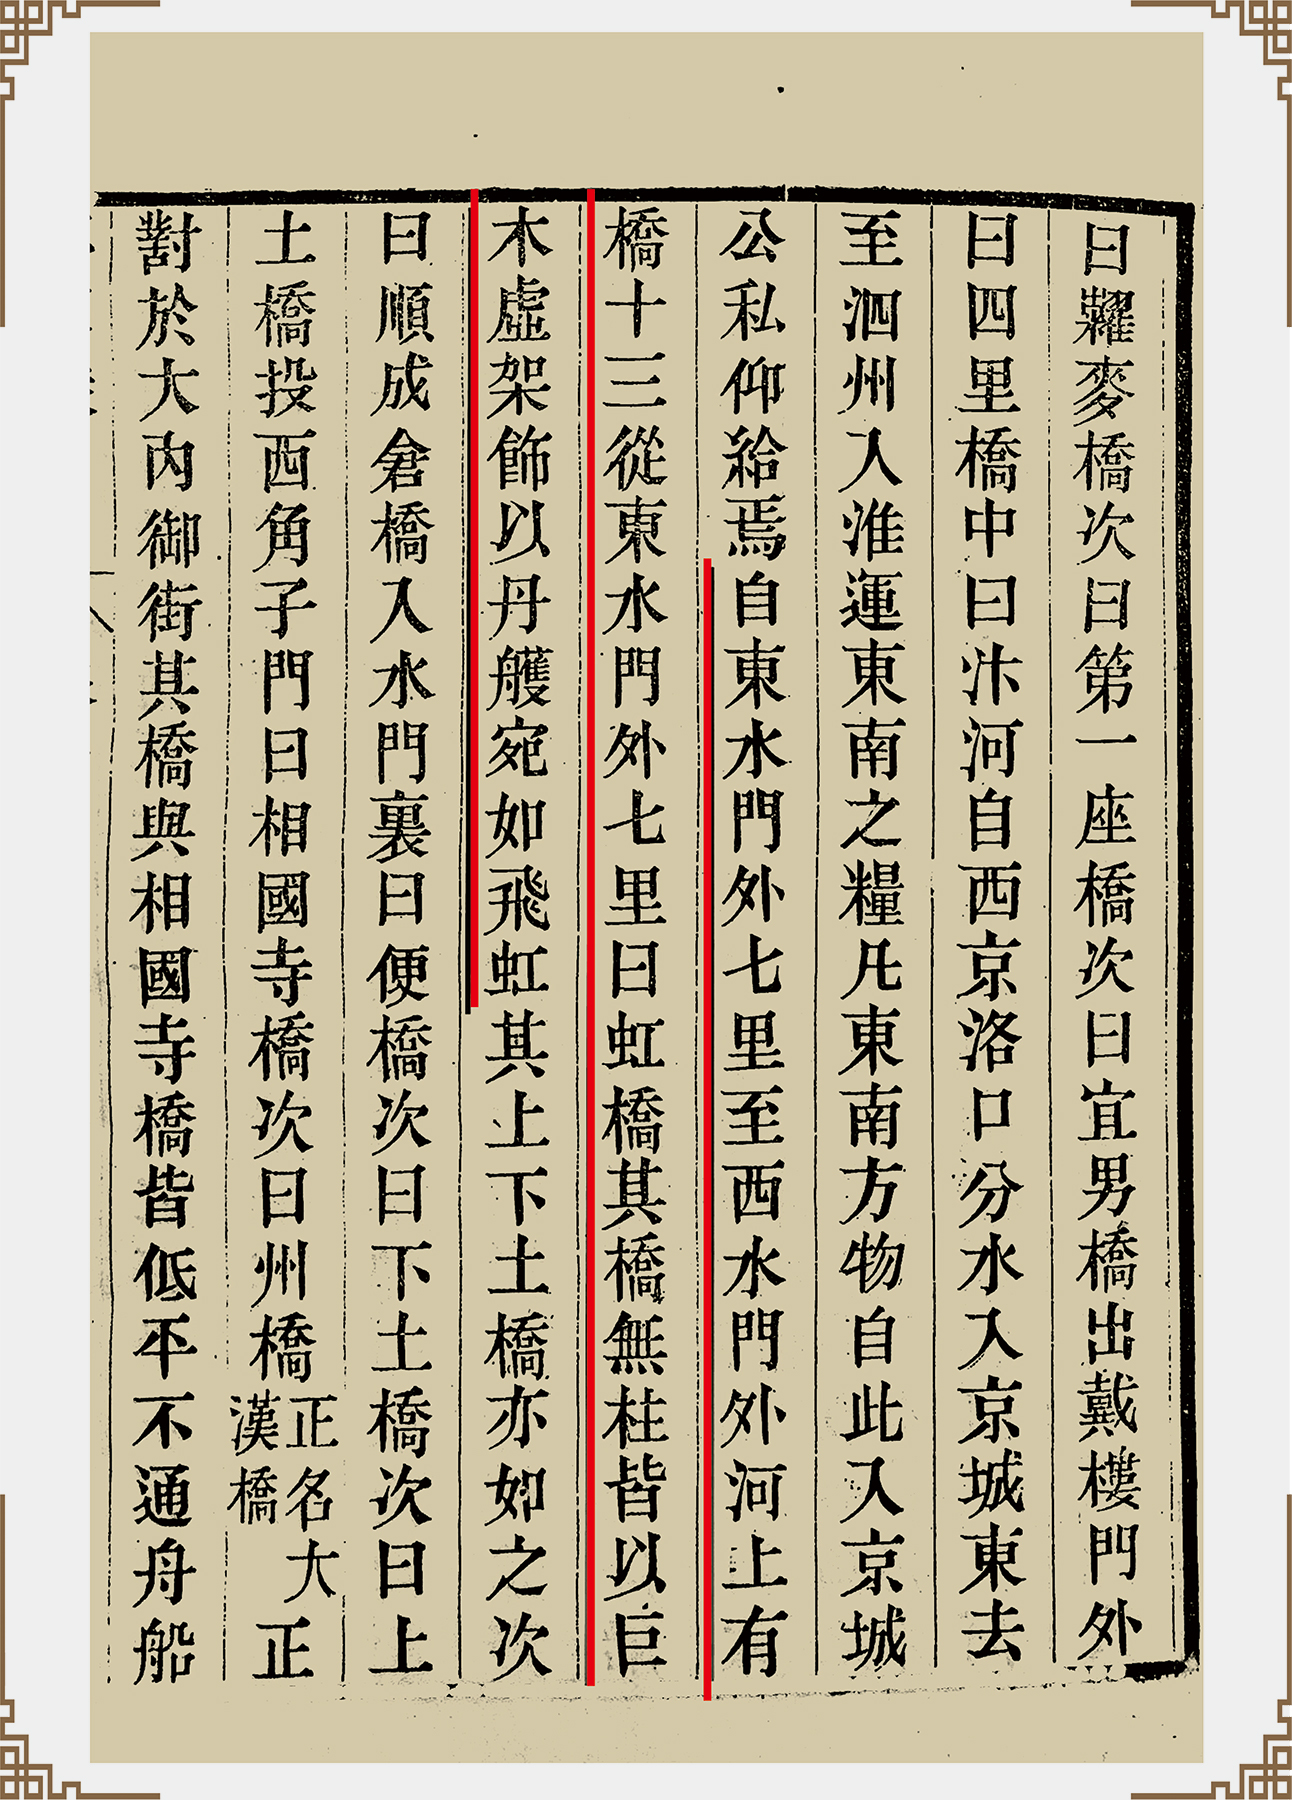 曰糶麥橋次曰第一座橋次曰宜男橋出戴樓門外
曰四里橋中曰汴河自西京洛口分水入京城東去
至泗州入淮運東南之糧凡東南方物自此入京城
公私仰給焉自東水門外七里至西水門外河上有
橋十三從東水門外七里曰虹橋其橋無柱皆以巨
木虛架飾以丹艧宛如飛虹其上下土橋亦如之次
曰順成倉橋入水門裏曰便橋次曰下土橋次曰上
土橋投西角子門曰相國寺橋次曰州橋正名大漢橋正
對於大內御街其橋與相國寺橋皆低平不通舟船